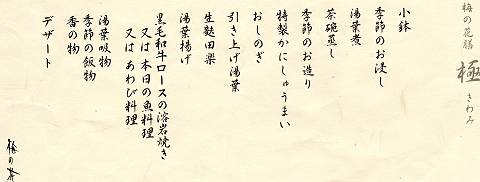 梅の花膳
極
きわみ
小鉢
季節のお浸し
湯葉煮
茶碗蒸し
季節のお造り
特製かにしゅうまい
おしのぎ
引き上げ湯葉
生麩田楽
湯葉揚げ
黒毛和牛ロースの溶岩焼き
又は本日の魚料理
又はあわび料理
湯葉吸物
季節の飯物
香の物
デザート
梅の花